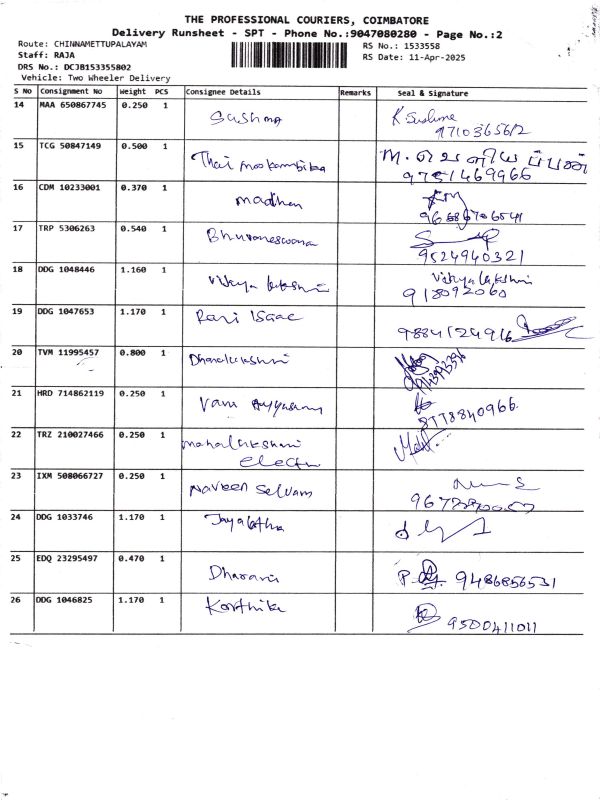 THE PROFESSIONAL COURIERS, COIMBATORE
Delivery Runsheet - SPT - Phone No.:9047080280 - Page No.:2
Route: CHINNAMETTUPALAYAM
RS No.: 1533558
Staff: RAJA
RS Date: 11-Apr-2025
DRS No.: DCJB153355802
Vehicle: Two Wheeler Delivery
S No Consignment No Weight PCS Consignee Details Remarks Seal & Signature
14 MAA 650867745 0.250 1 Sushma K Sushma
9710365612
15 TCG 50847149 0.500 1 Thai mookambika
9751469966
16 CDM 10233001 0.370 1 madhan
17 TRP 5306263 0.540 1 Bhuvaneswana
9524940321
18 DDG 1048446 1.160 1 Vidhya lakshmi Vidhya lakshmi
918092060
19 DDG 1047653 1.170 1 Ravi Isaac
9884124916
20 TVM 11995457 0.800 1 Dhanalakshmi
21 HRD 714862119 0.250 1 Vani
8778840966
22 TRZ 210027466 0.250 1 mahalakshmi
Electri
23 IXM 508066727 0.250 1 Naveen Selvam
24 DDG 1033746 1.170 1 Jayalatha
25 EDQ 23295497 0.470 1 Dharani
9486856531
26 DDG 1046825 1.170 1 Karthika
9500411011